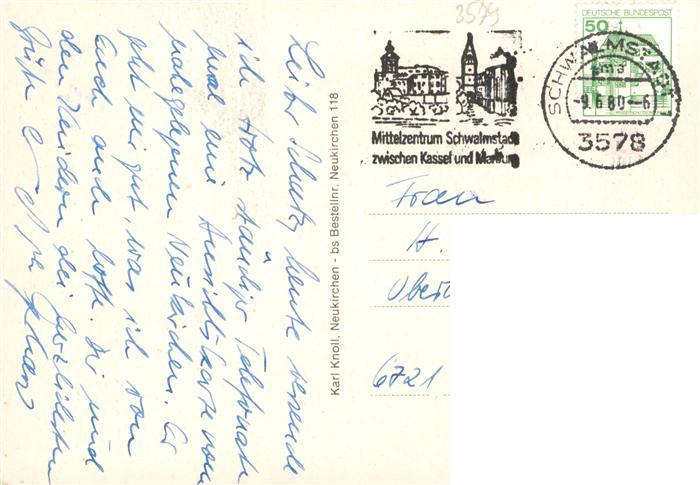 3579
DEUTSCHE BUNDESPOST
50
SCHWALMSTADT 1
- 9.6.80 -- 6
3578
Mittelzentrum Schwalmstadt
zwischen Kassel und Marburg
Lieber Schatz, heute sende
ich trotz ständiger Telefonate
mal eine Ansichtskarte vom
nahegelegenen Neukirchen. Es
geht mir gut, was ich von
Euch auch hoffe. Dir und
den Kindern die herzlichsten
Grüße
Karl Knoll, Neukirchen - bs Bestellnr. Neukirchen 118
Frau
H.
6721